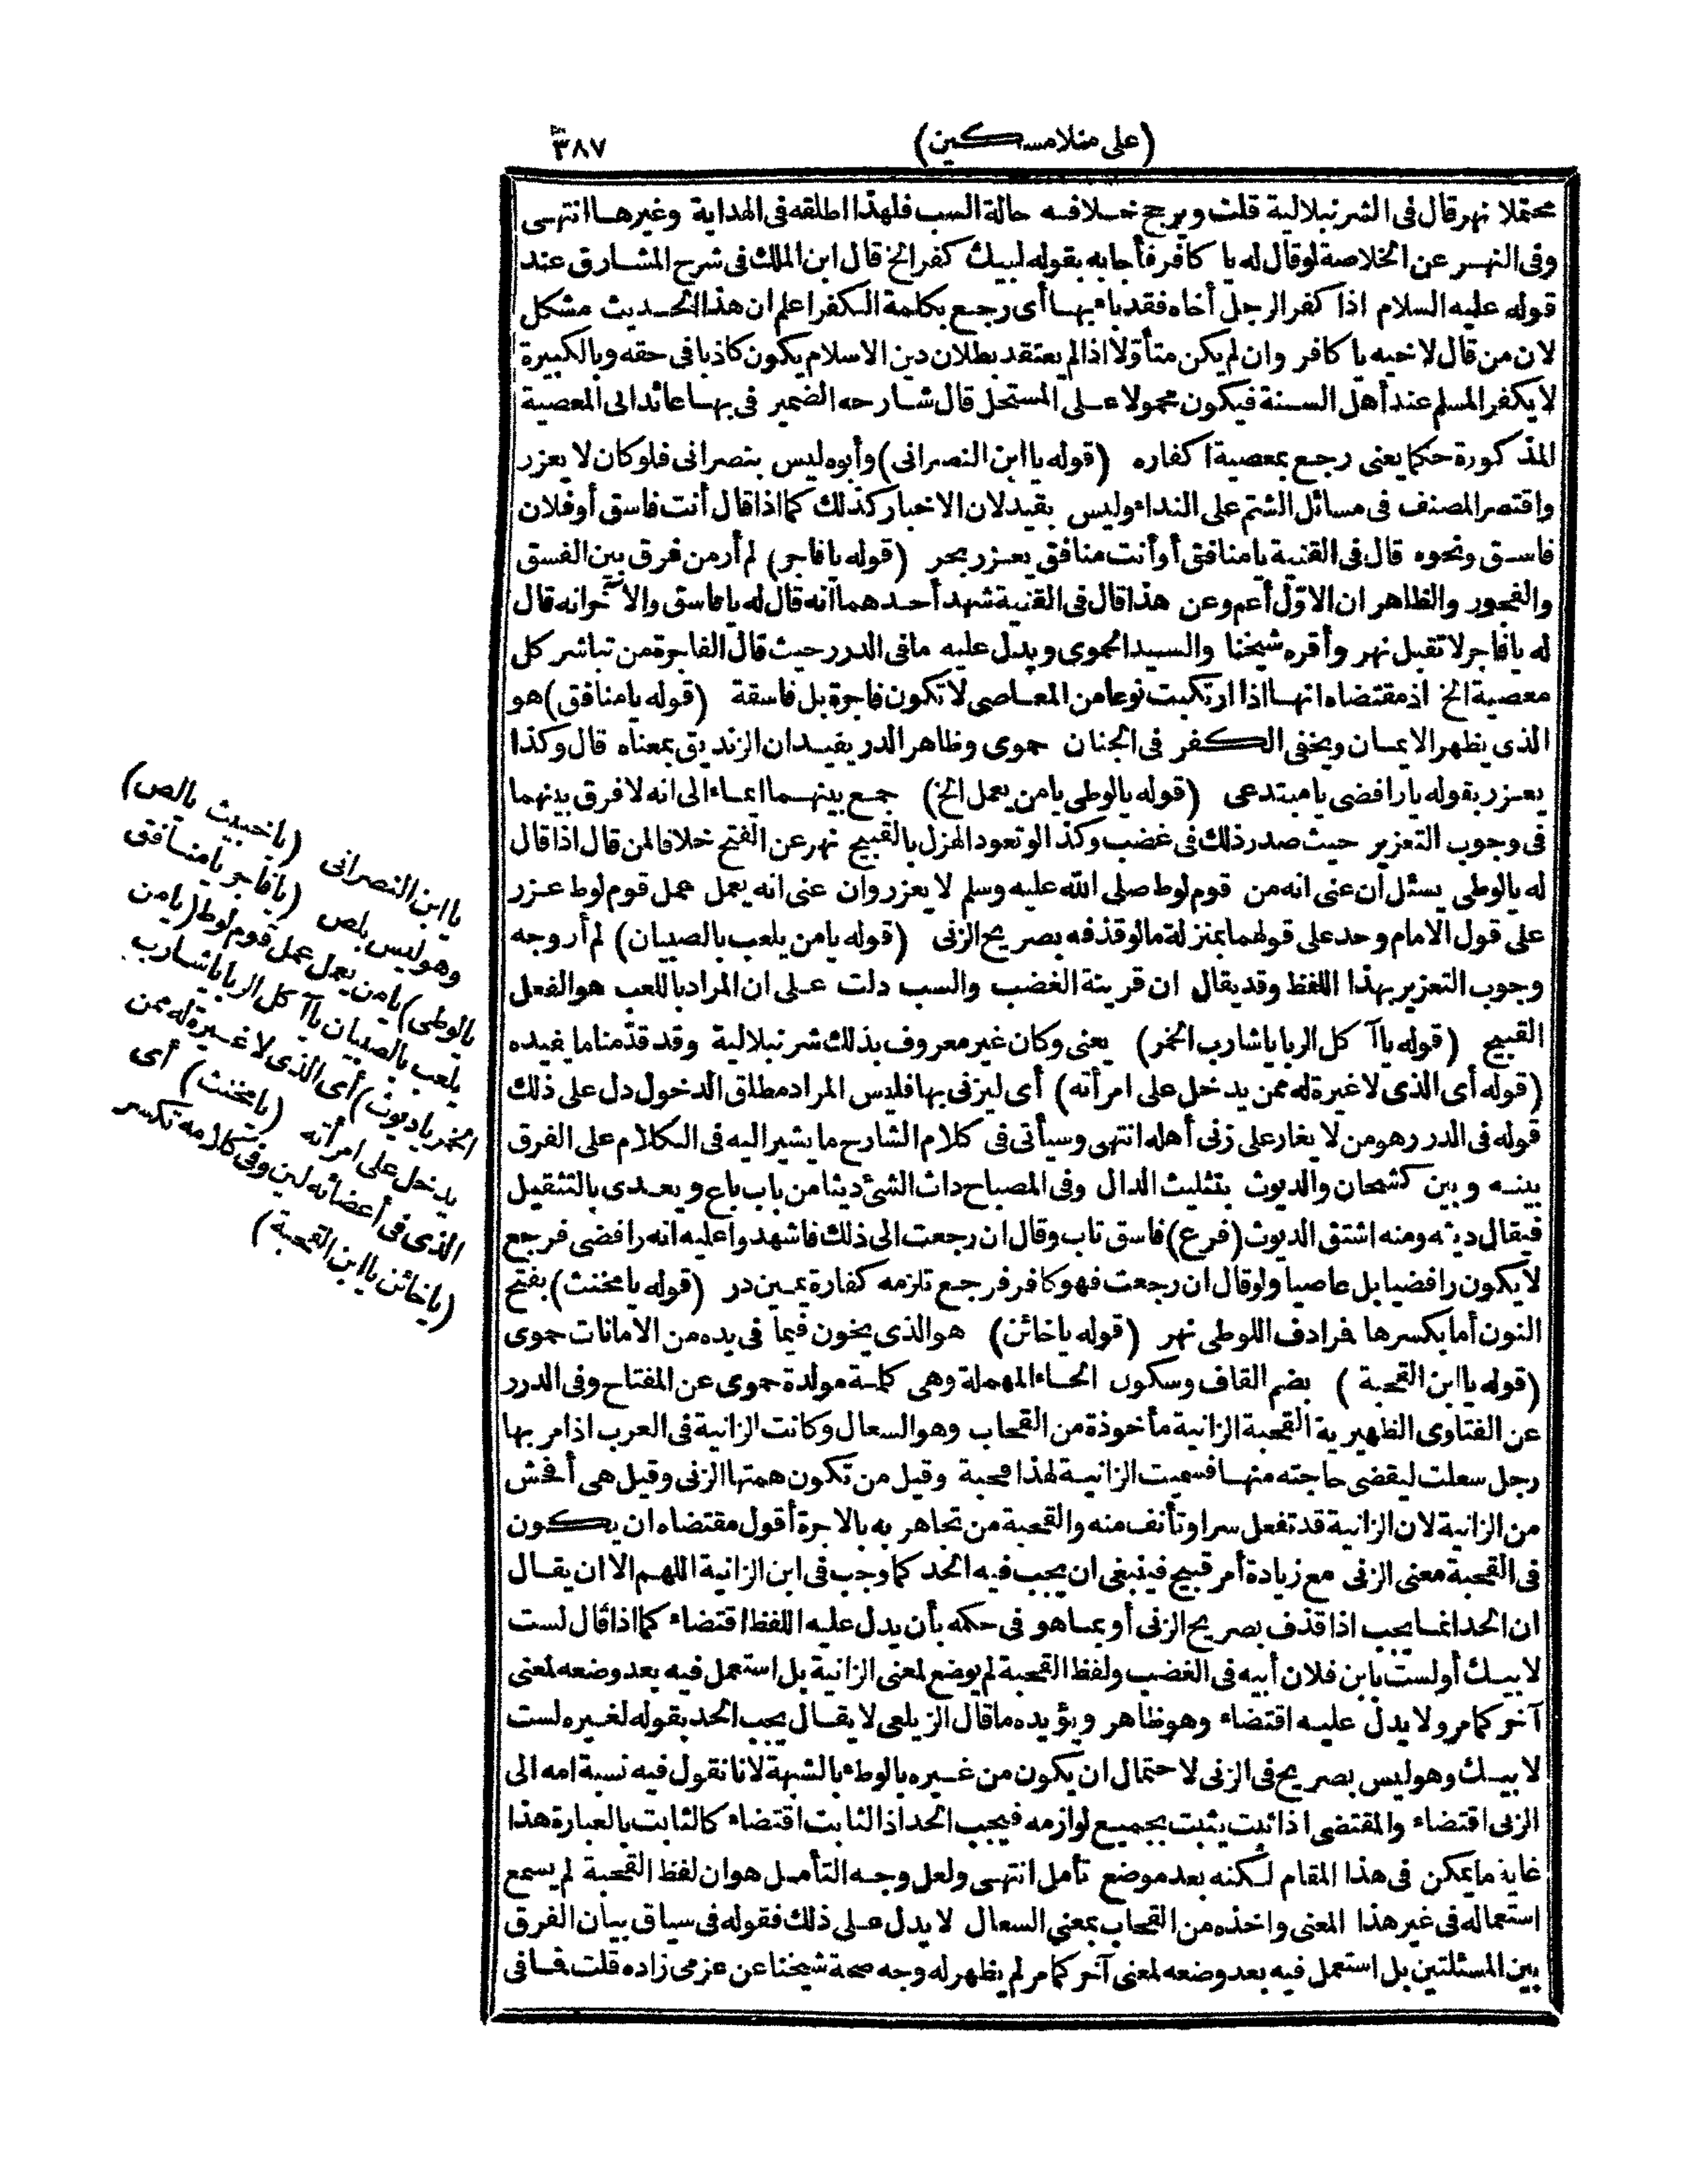 (على منلا مسكين) ٣٨٧
محتملا نهر قال فى الشرنبلالية قلت ويرجح خلافه حالة السب فلهذا اطلقه فى الهداية وغيرها انتهى
وفى النهر عن الخلاصة لو قال له يا كافر فأجابه بقوله لبيك كفر الخ قال ابن الملك فى شرح المشارق عند
قوله عليه السلام اذا كفر الرجل أخاه فقد باء بها أى رجع بكلمة الكفر اعلم ان هذا الحديث مشكل
لان من قال لاخيه يا كافر وان لم يكن متأوّلا اذا لم يعتقد بطلان دين الاسلام يكون كاذبا فى حقه وبالكبيرة
لا يكفر المسلم عند أهل السنة فيكون محمولا على المستحل قال شارحه الضمير فى بها عائد الى المعصية
المذكورة حكما يعنى رجع بمعصية اكفاره (قوله يا ابن النصرانى) وأبوه ليس بنصرانى فلو كان لا يعزر
واقتصر المصنف فى مسائل الشتم على النداء وليس بقيد لان الاخبار كذلك كما اذا قال أنت فاسق أو فلان
فاسق ونحوه قال فى القنية يا منافق أو أنت منافق يعزر بحر (قوله يا فاجر) لم أر من فرق بين الفسق
والفجور والظاهر ان الاوّل أعم وعن هذا قال فى القنية شهد أحدهما أنه قال له يا فاسق والآخر انه قال
له يا فاجر لا تقبل نهر وأقره شيخنا والسيد الحموى ويدل عليه ما فى الدرر حيث قال الفاجرة من تباشر كل
معصية الخ اذ مقتضاه انها اذا ارتكبت نوعا من المعاصى لا تكون فاجرة بل فاسقة (قوله يا منافق) هو
الذى يظهر الايمان ويخفى الكفر فى الجنان حموى وظاهر الدر يفيد ان الزنديق بمعناه قال وكذا
يعزر بقوله يا رافضى يا مبتدعى (قوله يا لوطى يا من يعمل الخ) جمع بينهما ايماء الى انه لا فرق بينهما
فى وجوب التعزير حيث صدر ذلك فى غضب وكذا لو تعود الهزل بالقبيح نهر عن الفتح خلافا لمن قال اذا قال
له يا لوطى يسئل ان عنى انه من قوم لوط صلى الله عليه وسلم لا يعزر وان عنى انه يعمل عمل قوم لوط عزر
على قول الامام وحد على قولهما بمنزلة ما لو قذفه بصريح الزنى (قوله يا من يلعب بالصبيان) لم أر وجه
وجوب التعزير بهذا اللفظ وقد يقال ان قرينة الغضب والسب دلت على ان المراد باللعب هو الفعل
القبيح (قوله يا آكل الربا يا شارب الخمر) يعنى وكان غير معروف بذلك شرنبلالية وقد قدّمنا ما يفيده
(قوله أى الذى لا غيرة له ممن يدخل على امرأته) أى ليزنى بها فليس المراد مطلق الدخول دل على ذلك
قوله فى الدرر هو من لا يغار على زنى أهله انتهى وسيأتى فى كلام الشارح ما يشير اليه فى الكلام على الفرق
بينه وبين كشحان والديوث بتثليث الدال وفى المصباح داث الشئ ديثا من باب باع ويعدى بالتثقيل
فيقال ديثه ومنه اشتق الديوث (فرع) فاسق تاب وقال ان رجعت الى ذلك فاشهدوا عليه انه رافضى فرجع
لا يكون رافضيا بل عاصيا ولو قال ان رجعت فهو كافر فرجع تلزمه كفارة يمين در (قوله يا مخنث) بفتح
النون أما بكسرها فرادف اللوطى نهر (قوله يا خائن) هو الذى يخون فيما فى يده من الامانات حموى
(قوله يا ابن القحبة) بضم القاف وسكون الحاء المهملة وهى كلمة مولدة حموى عن المفتاح وفى الدرر
عن الفتاوى الظهيرية القحبة الزانية مأخوذة من القحاب وهو السعال وكانت الزانية فى العرب اذا مر بها
رجل سعلت ليقضى حاجته منها فسميت الزانية لهذا قحبة وقيل من تكون همتها الزنى وقيل هى أفحش
من الزانية لان الزانية قد تفعل سرا وتأنف منه والقحبة من تجاهر به بالاجرة أقول مقتضاه ان يكون
فى القحبة معنى الزنى مع زيادة أمر قبيح فينبغى ان يجب فيه الحد كما وجب فى ابن الزانية اللهم الا ان يقال
ان الحد انما يجب اذا قذف بصريح الزنى أو بما هو فى حكمه بأن يدل عليه اللفظ اقتضاء كما اذا قال لست
لابيك أو لست بابن فلان أبيه فى الغضب ولفظ القحبة لم يوضع لمعنى الزانية بل استعمل فيه بعد وضعه لمعنى
آخر كما مر ولا يدل عليه اقتضاء وهو ظاهر ويؤيده ما قال الزيلعى لا يقال يجب الحد بقوله لغيره لست
لابيك وهو ليس بصريح فى الزنى لاحتمال ان يكون من غيره بالوطء بالشبهة لانا نقول فيه نسبة امه الى
الزنى اقتضاء والمقتضى اذا ثبت يثبت بجميع لوازمه فيجب الحد اذ الثابت اقتضاء كالثابت بالعبارة هذا
غاية ما يمكن فى هذا المقام لكنه بعد موضع تأمل انتهى ولعل وجه التأمل هو ان لفظ القحبة لم يسمع
استعماله فى غير هذا المعنى واخذه من القحاب بمعنى السعال لا يدل على ذلك فقوله فى سياق بيان الفرق
بين المسئلتين بل استعمل فيه بعد وضعه لمعنى آخر كما مر لم يظهر له وجه صحة شيخنا عن عزمى زاده قلت فما فى
يا ابن النصرانى (يا خبيث يا لص)
وهو ليس بلص (يا فاجر يا منافق
يا لوطى) يا من يعمل عمل قوم لوط (يا من
يلعب بالصبيان يا آكل الربا يا شارب
الخمر يا ديوث) أى الذى لا غيرة له ممن
يدخل على امرأته (يا مخنث) أى
الذى فى أعضائه لين وفى كلامه تكسر
(يا خائن يا ابن القحبة)